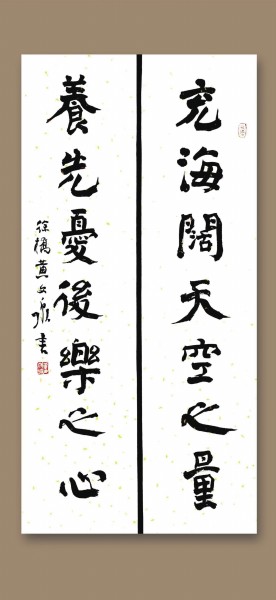 充海闊天空之量
養先憂後樂之心
徐橋黄文泉書